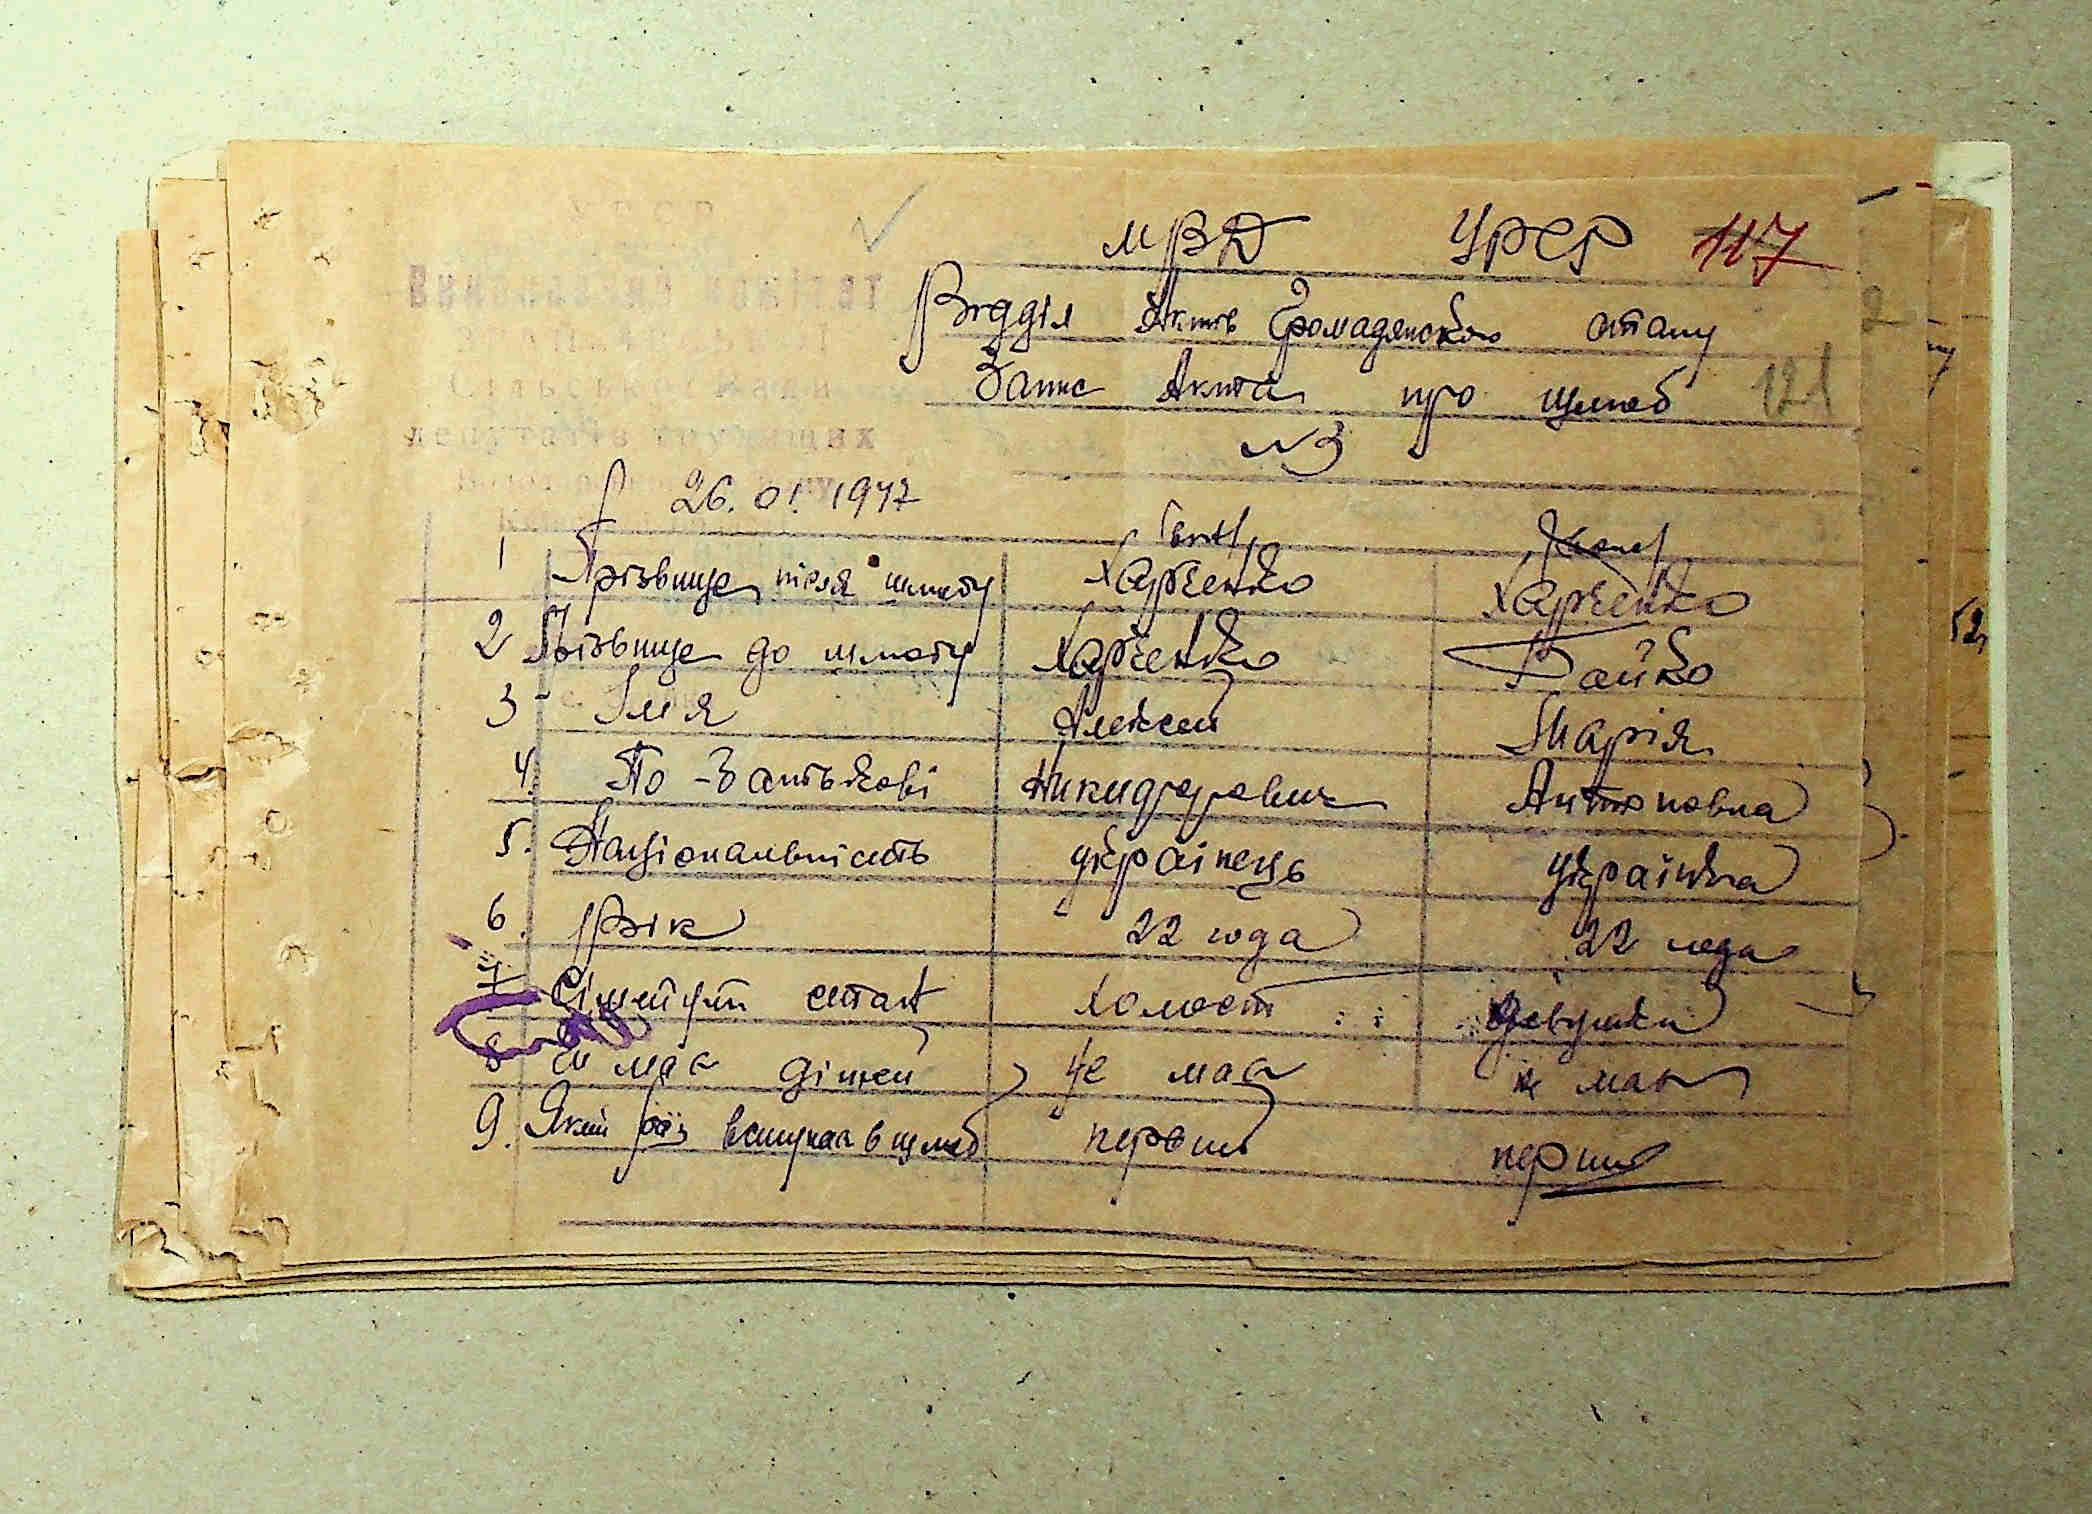 УРСР
Виконавчий комітет
Сільської Ради
депутатів трудящих
МВД УРСР 117
Відділ Актів Громадянського стану
Запис Акта про шлюб 121
№3
26.01.1947
1 Прізвище після шлюбу Харченко Харченко
2 Прізвище до шлюбу Харченко Бойко
3 Імя Алексей Марія
4. По-Батькові Никифорович Антоновна
5. Національність українець українка
6. Рік 22 года 22 года
7 Сімейний стан холост девушка
8 чи має дітей не має не має
9. Який раз вступає в шлюб первий перший